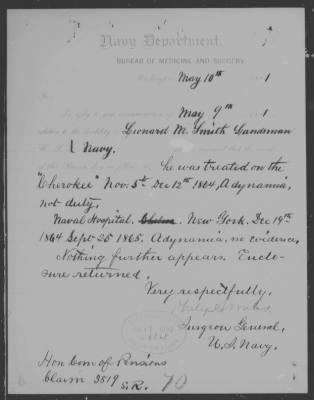 Navy Department,
BUREAU OF MEDICINE AND SURGERY,
May 10th 1
May 9th 1
Leonard M. Smith Landsman
Navy.
he was treated on the
"Cherokee" Nov. 5th Dec 12th 1864, Adynamia,
not duty,
Naval Hospital. New York. Dec 19th
1864 Sept 25 1865. Adynamia, no evidence,
Nothing further appears. Enclo-
sure returned.
Very respectfully,
Surgeon General,
U.S. Navy.
Hon Com of Pensions
Claim 3519 S.R. 70